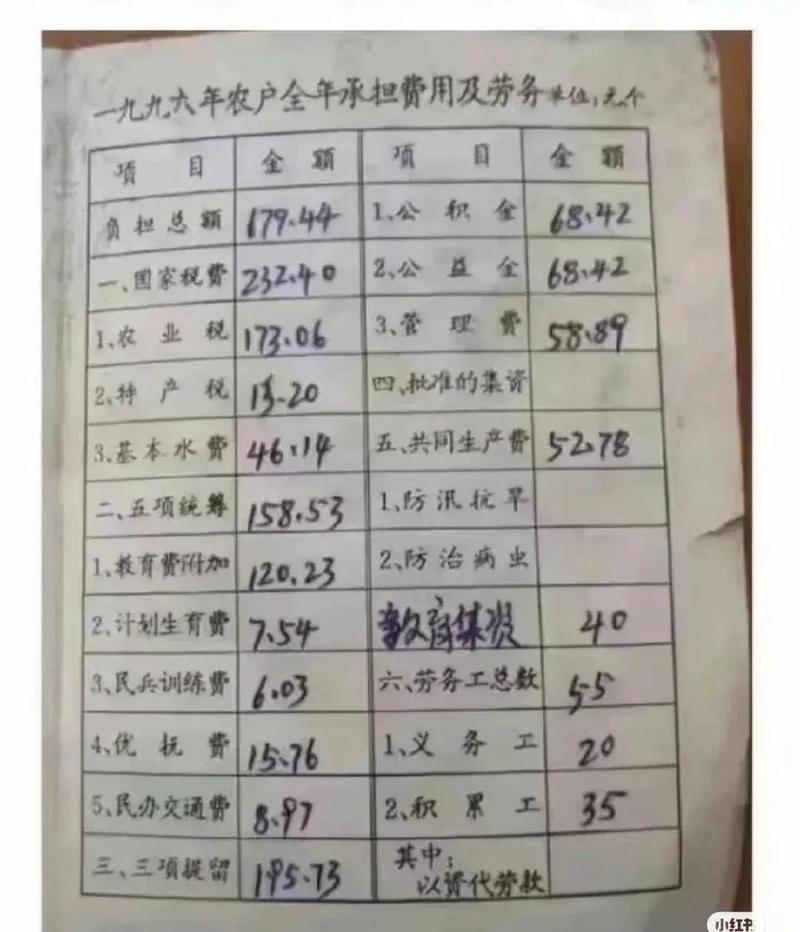 一九九六年农户全年承担费用及劳务 单位:元、个
项目 金额 项目 金额
负担总额 179.44 1、公积金 68.42
一、国家税费 232.40 2、公益金 68.42
1、农业税 173.06 3、管理费 58.89
2、特产税 13.20 四、批准的集资
3、基本水费 46.14 五、共同生产费 52.78
二、五项统筹 158.53 1、防汛抗旱
1、教育费附加 120.23 2、防治病虫
2、计划生育费 7.54 教育集资 40
3、民兵训练费 6.03 六、劳务工总数 55
4、优抚费 15.76 1、义务工 20
5、民办交通费 8.97 2、积累工 35
三、三项提留 195.73 其中:
以资代劳款
小红书